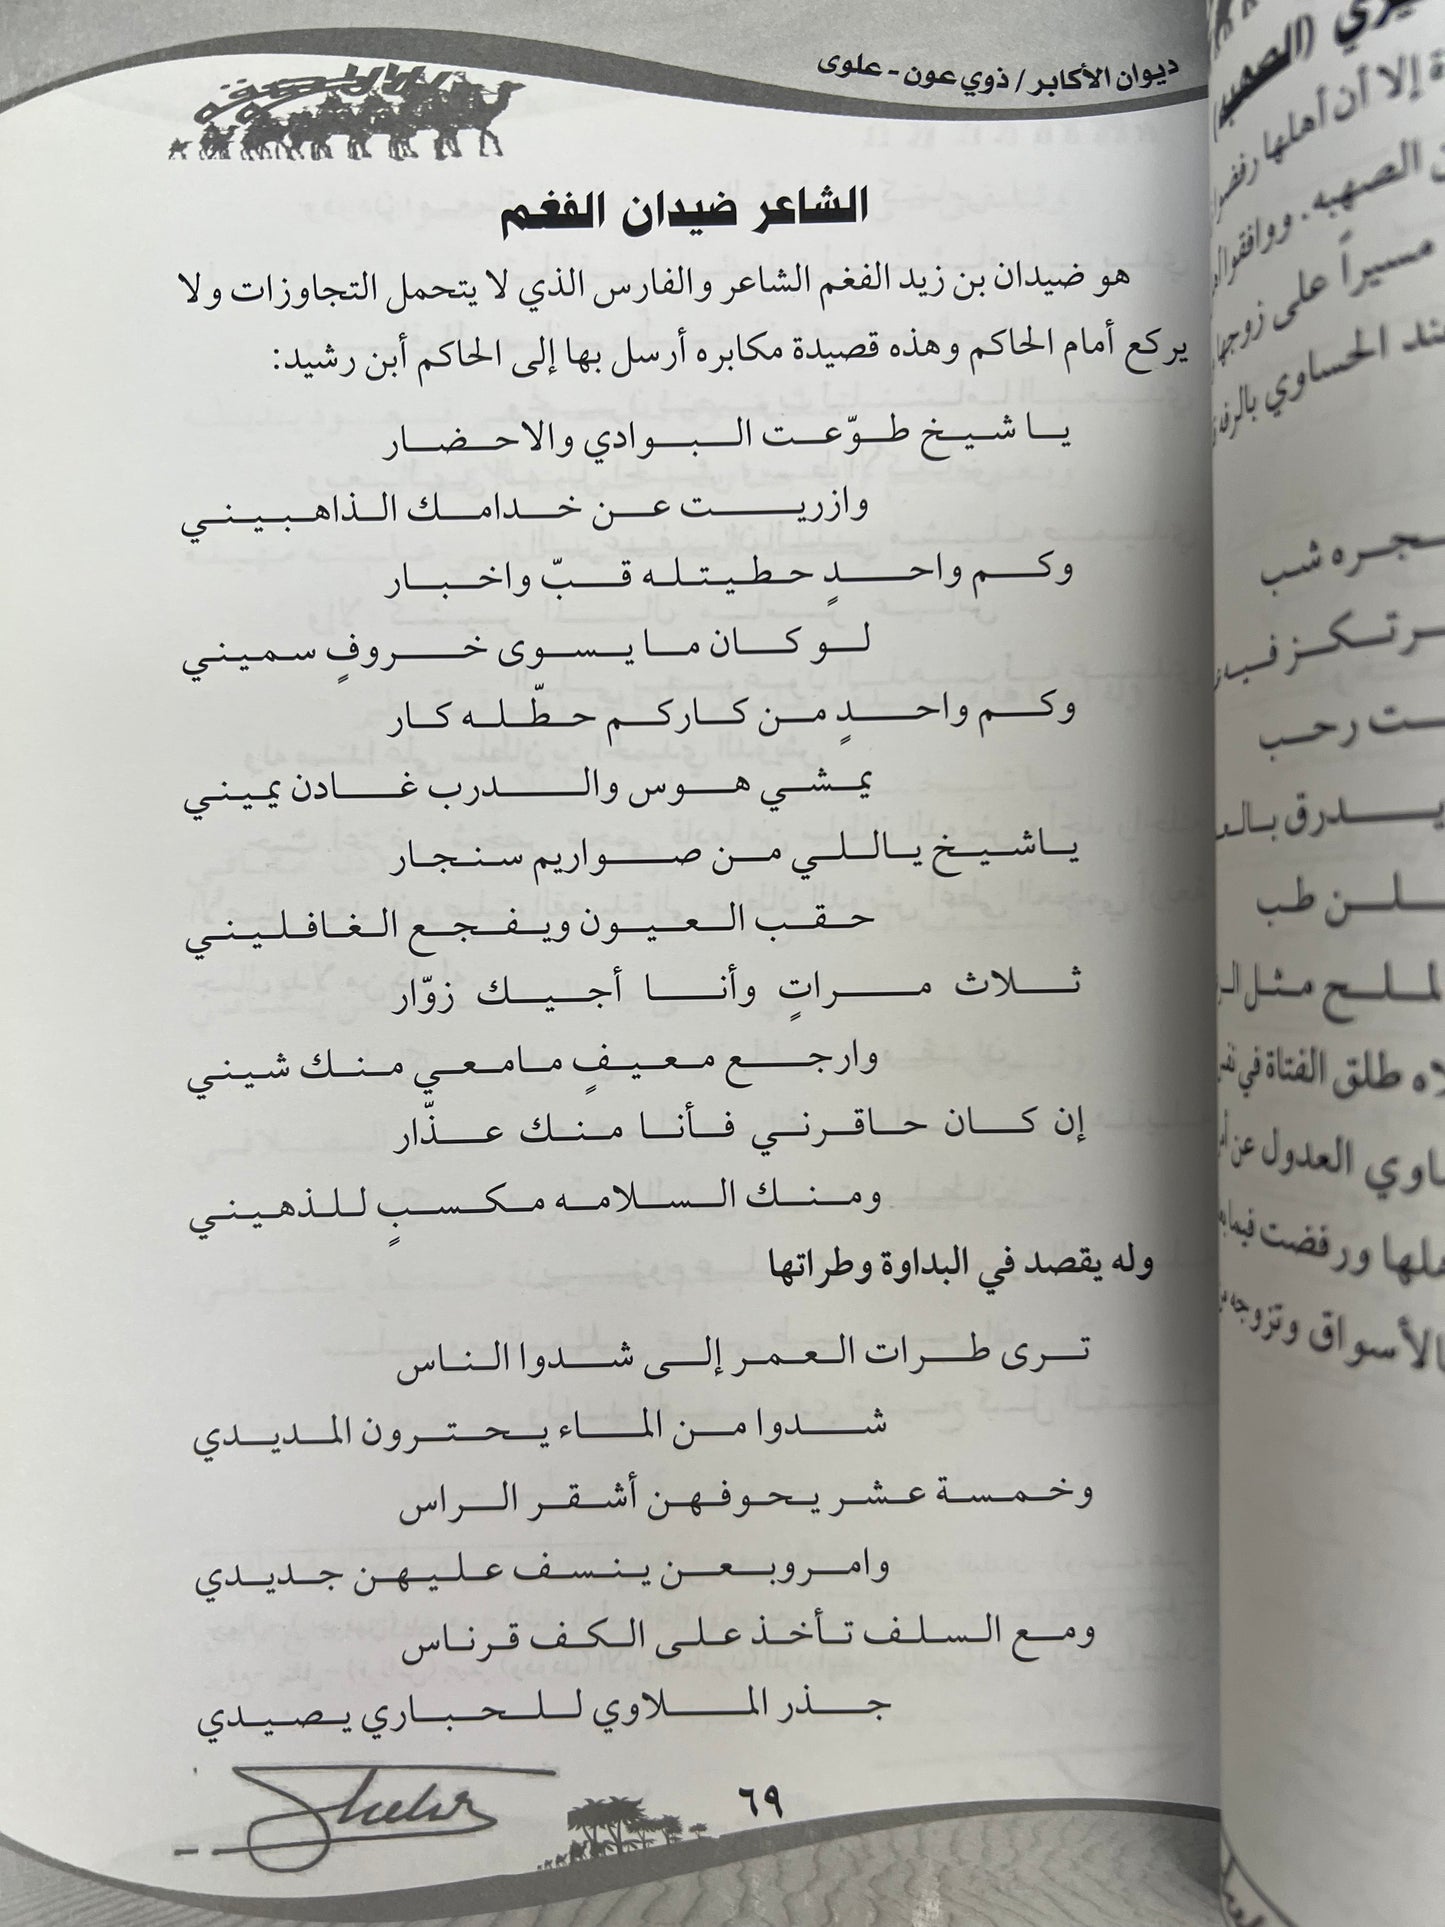 ديوان الأكابر / ذوي عون - علوى
الشاعر ضيدان الفغم
هو ضيدان بن زيد الفغم الشاعر والفارس الذي لا يتحمل التجاوزات ولا
يركع أمام الحاكم وهذه قصيدة مكابره أرسل بها إلى الحاكم أبن رشيد:
يا شيخ طوّعت البوادي والاحضار
وازريت عن خدامك الذاهبيني
وكم واحدٍ حطيتله قبّ واخبار
لو كان ما يسوى خروفٍ سميني
وكم واحدٍ من كاركم حطّله كار
يمشي هوس والدرب غادن يميني
ياشيخ ياللي من صواريم سنجار
حقب العيون ويفجع الغافليني
ثلاث مراتٍ وأنا أجيك زوّار
وارجع معيفٍ مامعي منك شيني
إن كان حاقرني فأنا منك عذّار
ومنك السلامه مكسبٍ للذهيني
وله يقصد في البداوة وطراتها
ترى طرات العمر إلى شدوا الناس
شدوا من الماء يحترون المديدي
وخمسة عشر يحوفهن أشقر الراس
وامروبعن ينسف عليهن جديدي
ومع السلف تأخذ على الكف قرناس
جذر الملاوي للحباري يصيدي
٦٩
إلا أن أهلها رفضوا
الصهبه. ووافقوا
مسيراً على زوجها
الحساوي بالرفدي
شب
رحب
يدرق
طب
الملح مثل
طلق الفتاة في
العدول عن
ورفضت فيما
وتزوجه